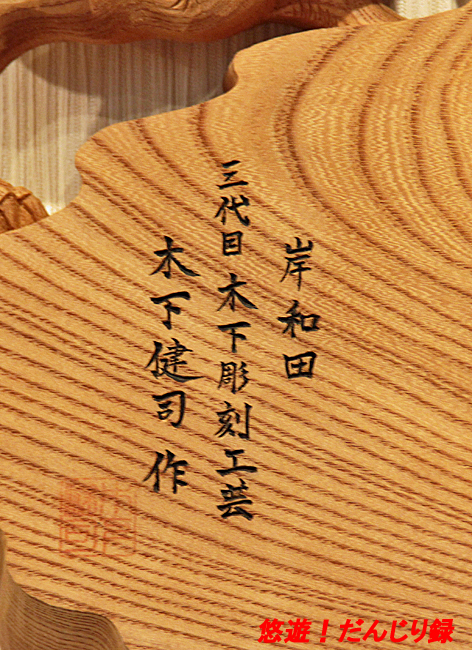 岸和田
三代目 木下彫刻工芸
木下健司 作
悠遊！だんじり録